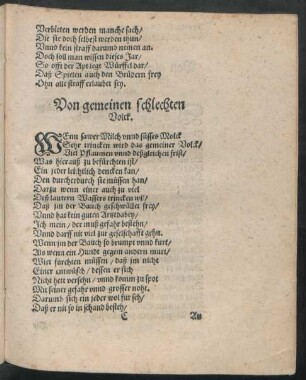 Verbieten werden manche sach/
Die sie doch selbest werden thun/
Vnnd kein straff darumb nemen an.
Doch soll man wissen dieses Jar/
So offt der Apt legt Würffel dar/
Daß Spielen auch den Brüdern frey
Ohn alle straff erlaubet sey.
Von gemeinen schlechten
Volck.
WEnn sawer Milch vnnd süsses Molck
Sehr trincken wird das gemeiner Volck/
Viel Pflaumen vnnd deßgleichen frist/
Was hierauß zu befürchten ist/
Ein jeder leichtlich dencken kan/
Den durcherdurch sie müssen han/
Darzu wenn einer auch zu viel
Deß lautern Wassers trincken wil/
Daß jm der Bauch geschwüllet frey/
Vnnd hat kein guten
Ich mein/ der muß gefahr bestehn/
Vnnd darff nit viel zur gesellschafft gehn.
Wenn jm der Bauch so brumpt vnnd kurt/
Als wenn ein Hundt gegem andern murt/
Wirt fürchten müssen/ daß jm nicht
Einer entwüsch/ dessen er sich
Nicht hett versehn/ vnnd komm zu spot
Mit seiner gefahr vnnd grosser noht.
Darumb sich ein jeder wol fürseh/
Daß er nit so in schand besteh/
E
An